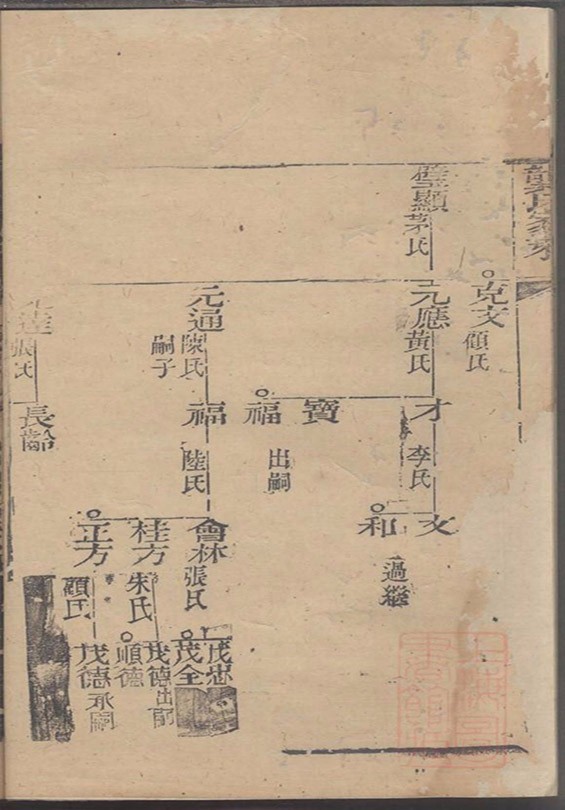 龔氏家乘
克文
顧氏
璧顯
茅氏
元應
黃氏
才
李氏
文
和
過繼
寶
福
出嗣
元通
陳氏
嗣子
福
陸氏
會林
張氏
茂全
桂方
朱氏
茂德
出嗣
順德
正方
顧氏
茂德
承嗣
達
張氏
長齡